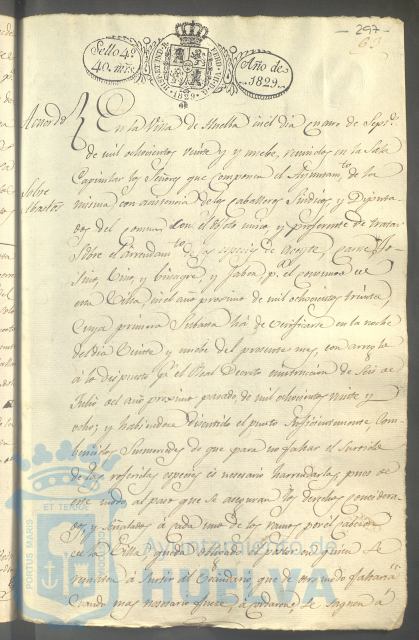 - 297 -
69
Sello 4º
40. mrs.
HISP. ET IND. R.
1829
Año de
1829.
Acuerdo
Sobre
Abastos
En la Villa de Huelva en el dia cuatro de Sepre.
de mil ochocientos veinte y nueve, reunidos en la Sala
Capitular los Señores que componen el Ayuntamto. de la
misma con asistencia de los caballeros Sindico y Diputa-
dos del comun con el objeto unico y preferente de tratar
sobre el arrendamto. de las especies de aceyte, carne, to-
sino, vino y vinagre, y jabon pa. el consumo de
esta Villa, en el año procsimo de mil ochocientos treinta,
cuya primera Subasta há de verificarse en la noche
del dia veinte y nueve del presente mes, con arreglo
á lo dispuesto pr. el Real Decreto instruccion de Seis de
Julio del año procsimo pasado de mil ochocientos veinte y
ocho; y habiendose discutido el punto suficientemente, com-
benidos Sus mercedes de que para no faltar el Surtido
de las referidas especies és necesario harrendarlas, pues de
este modo, al paso que se aseguran los derechos considera-
dos y señalados á cada uno de los ramos por el cabezon
de la Villa, queda obligado el postor en quien se
remata á surtir al vecindario, que de otro modo faltaria
cuando mas necesario fuese, á
ET TERRÆ
PORTUS MARIS
Ayuntamiento de
HUELVA